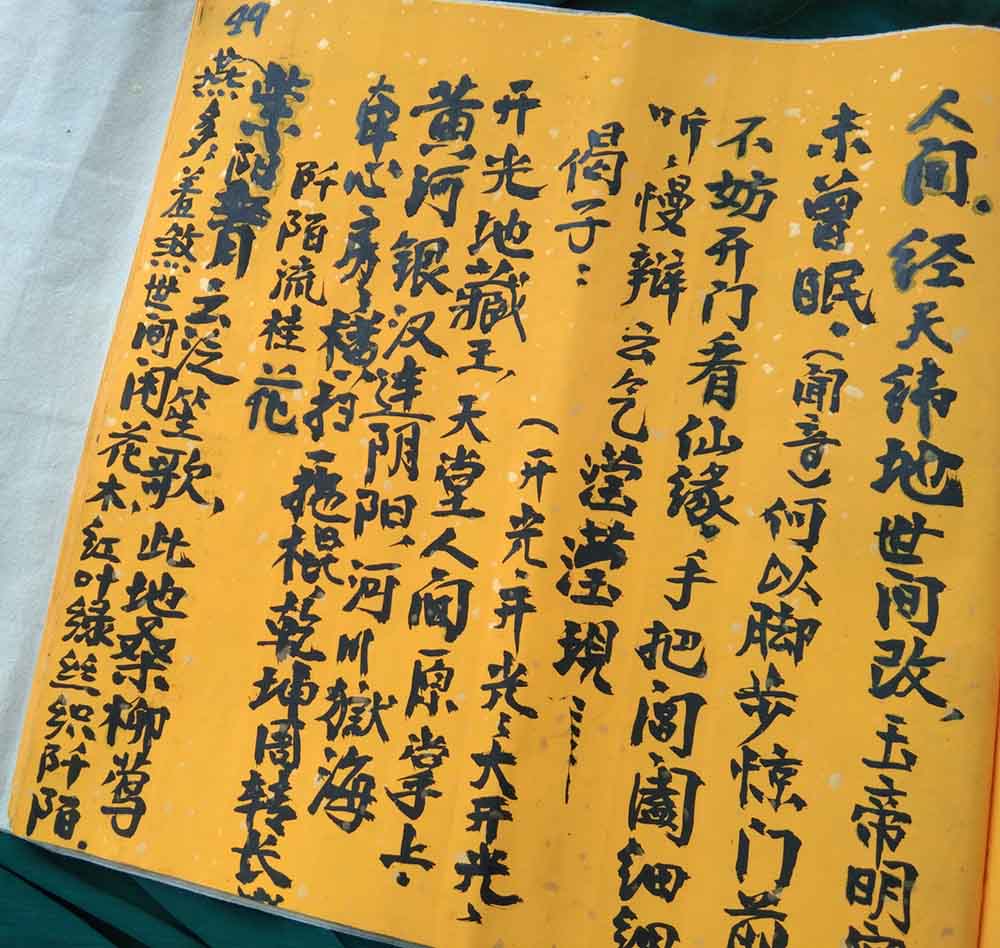 人间。经天纬地世间改，玉帝明宫
未曾眠。（闻音）何以脚步惊门前
不妨开门看仙缘。手把阊阖细细
听，慢辩云气滢滢现……
偈子：（开光，开光，大开光，
开光地藏王，天堂人间原掌上。
黄河银汉连阴阳，河川嶽海
牵心房，横扫一拖棍，乾坤周转长
阡陌流桂花
紫阳青云泛笙歌，此地桑柳莺
燕多，羞煞世间闲花木，红叶绿丝织阡陌。
49